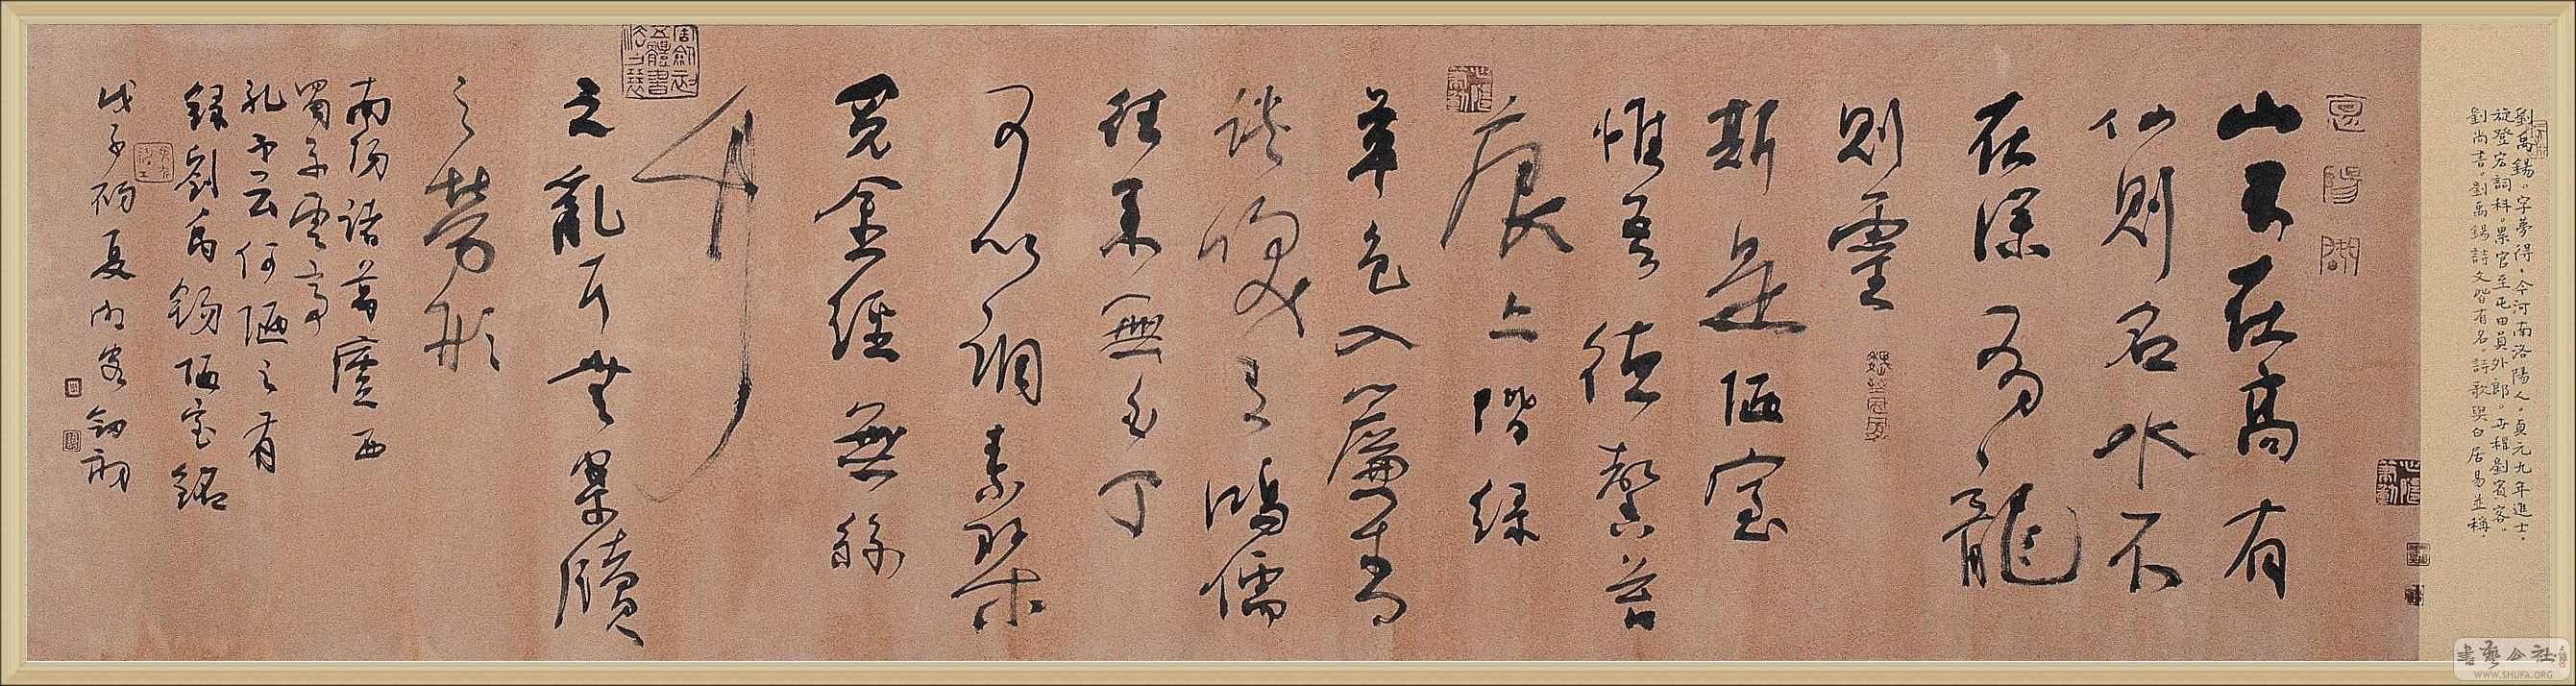 劉禹錫。字夢得，今河南洛陽人。貞元九年進士。
旋登宏詞科。累官至屯田員外郎。世稱劉賓客。
劉尚書。劉禹錫詩文皆有名。詩歌與白居易並稱。
山不在高有
仙則名水不
在深有龍
則靈
斯是陋室
惟吾德馨苔
痕上階綠
草色入簾青
談笑有鴻儒
往來無白丁
可以調素琴
閱金經無絲
竹
之亂耳無案牘
之勞形
南陽諸葛廬西
蜀子雲亭
孔子云何陋之有
錄劉禹錫陋室銘
戊子初夏
書藝公社
WWW.SHUFA.ORG